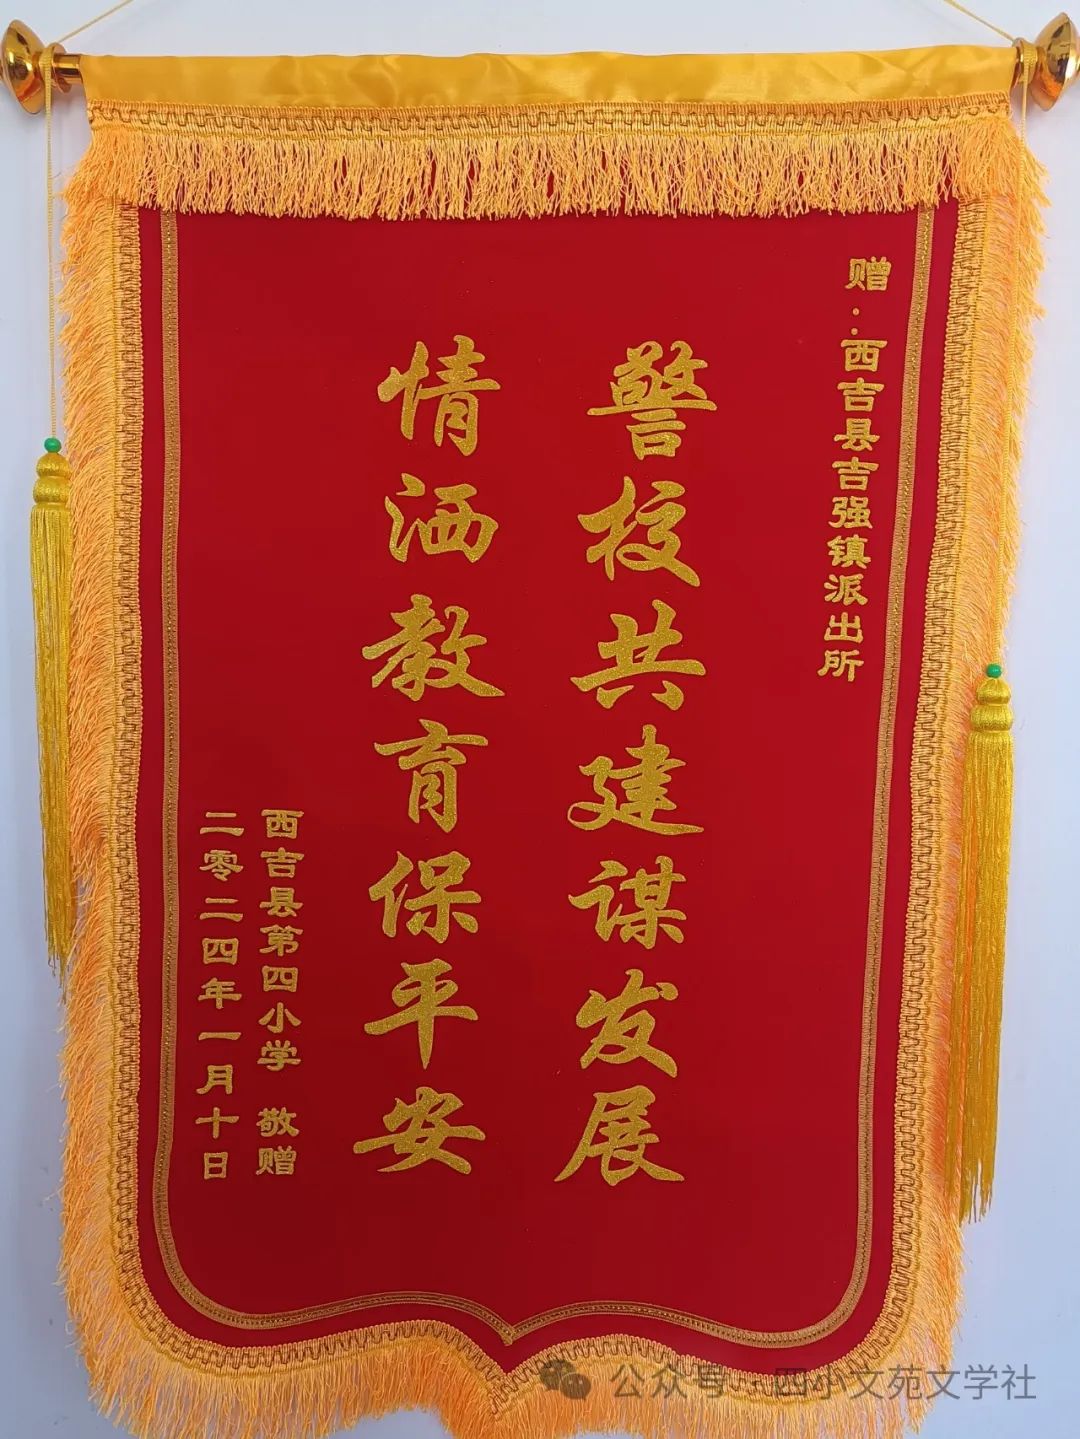 赠：西吉县吉强镇派出所
警校共建谋发展
情洒教育保平安
西吉县第四小学 敬赠
二零二四年一月十日
公众号·四小文苑文学社